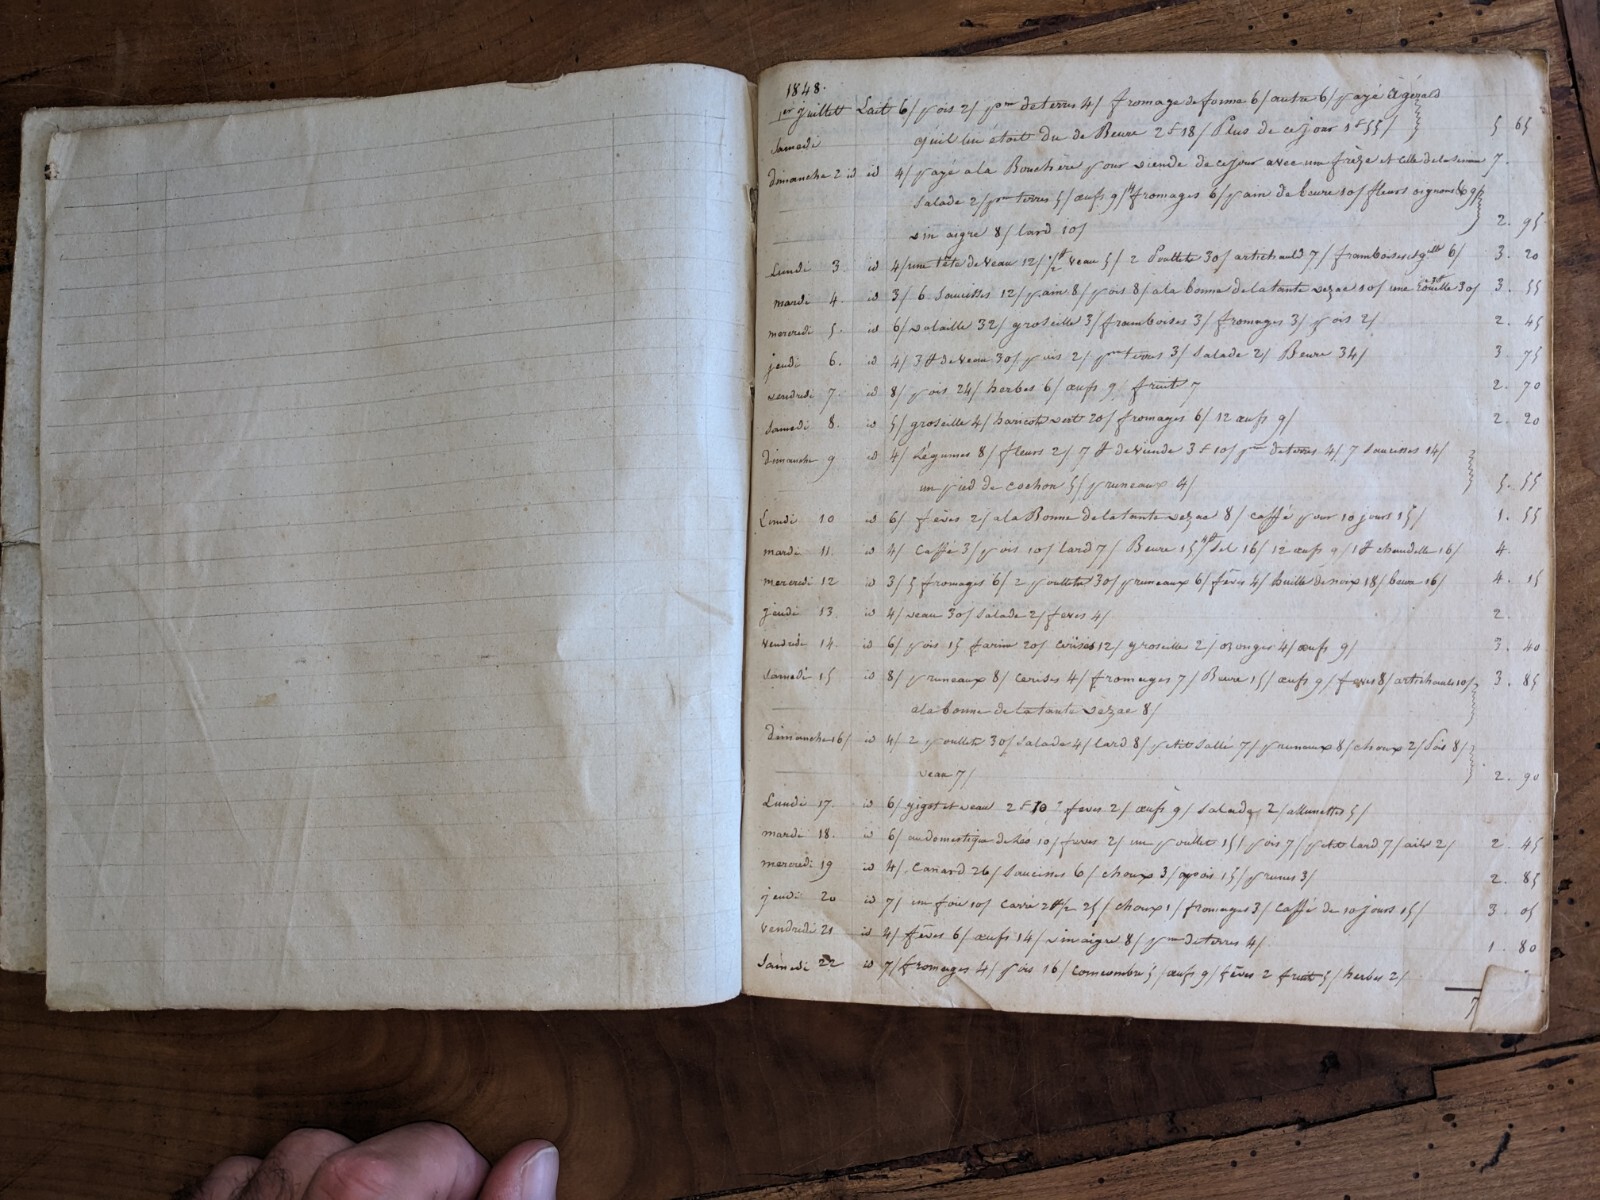 1848.
1er Juillet Lait 6/ pois 2/ pm de terres 4/ fromage de forme 6/ autre 6/ payé à gérald
Samedi qu'il lui étoit du de Beure 2 F 18/ Plus de ce jour 1 F 55/ 5 65
dimanche 2 id id 4/ payé a la Bouchère pour viande de ce jour avec une frèze et celle de la semaine 7.
Salade 2/ pm terres 5/ œufs 9/ fromages 6/ pain de beure 10/ fleurs oignons 9/
vin aigre 8/ lard 10/ 2. 95
Lundi 3 id 4/ une tête de veau 12/ 1/2 # veau 5/ 2 Poullets 30/ artichauld 7/ framboises et 6/ 3. 20
mardi 4. id 3/ 6 Saucisses 12/ pain 8/ pois 8/ a la bonne de la tante vezac 10/ une 30/ 3. 55
mercredi 5. id 6/ volaille 32/ groseille 3/ framboises 3/ fromages 3/ pois 2/ 2. 45
jeudi 6. id 4/ 3 # de veau 30/ pois 2/ pm terres 3/ Salade 2/ Beure 34/ 3. 75
vendredi 7. id 8/ pois 24/ herbes 6/ œufs 9/ fruits 7 2. 70
Samedi 8. id 5/ groseille 4/ haricots vert 20/ fromages 6/ 12 œufs 9/ 2. 20
dimanche 9 id 4/ Légumes 8/ fleurs 2/ 7 # de viande 3 F 10/ pm de terres 4/ 7 Saucisses 14/
un pied de cochon 5/ pruneaux 4/ 5. 55
Lundi 10 id 6/ fèves 2/ a la Bonne de la tante vezac 8/ caffé pour 10 jours 15/ 1. 55
mardi 11. id 4/ Caffé 3/ pois 10/ lard 7/ Beure 15/ Sel 16/ 12 œufs 9/ 1 # chandelle 16/ 4.
mercredi 12 id 3/ 5 fromages 6/ 2 poullets 30/ pruneaux 6/ fèves 4/ huille de noix 18/ beure 16/ 4. 15
jeudi 13. id 4/ veau 30/ Salade 2/ feves 4/ 2.
vendredi 14. id 6/ pois 15 farine 20/ cerises 12/ groseille 2/ oranges 4/ œufs 9/ 3. 40
Samedi 15 id 8/ pruneaux 8/ cerises 4/ fromages 7/ Beure 15/ œufs 9/ feves 8/ artichauds 10/ 3. 85
a la bonne de la tante vezac 8/
dimanche 16/ id 4/ 2 poullets 30/ salade 4/ lard 8/ petit Sallé 7/ pruneaux 8/ choux 2/ Pois 8/
veau 7/ 2. 90
Lundi 17. id 6/ gigot et veau 2 F 10 feves 2/ œufs 9/ Salade 2/ allumettes 5/
mardi 18. id 6/ au domestique de 10/ feves 2/ un poullet 15/ pois 7/ petit lard 7/ ails 2/ 2. 45
mercredi 19 id 4/ Canard 26/ Saucisses 6/ choux 3/ pois 15/ prunes 3/ 2. 85
jeudi 20 id 7/ un foie 10/ Carré 2 # 1/2 25/ choux 1/ fromages 3/ Caffé de 10 jours 15/ 3. 05
vendredi 21 id 4/ fèves 6/ œufs 14/ vinaigre 8/ pm de terres 4/ 1. 80
Samedi 22 id 7/ fromages 4/ pois 16/ concombre 5/ œufs 9/ fèves 2 fruit 5/ herbes 2/
7